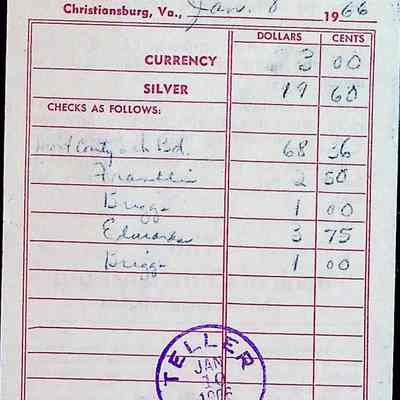 Christiansburg, Va., Jan. 8 1966
DOLLARS CENTS
CURRENCY 3 00
SILVER 19 60
CHECKS AS FOLLOWS:
Mont County Sch Bd. 68 36
Franklin 2 50
Briggs 1 00
Edwards 3 75
Briggs 1 00
TELLER
JAN
10
1966